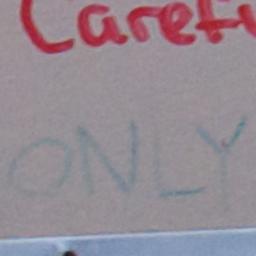 Carefu
ONLY